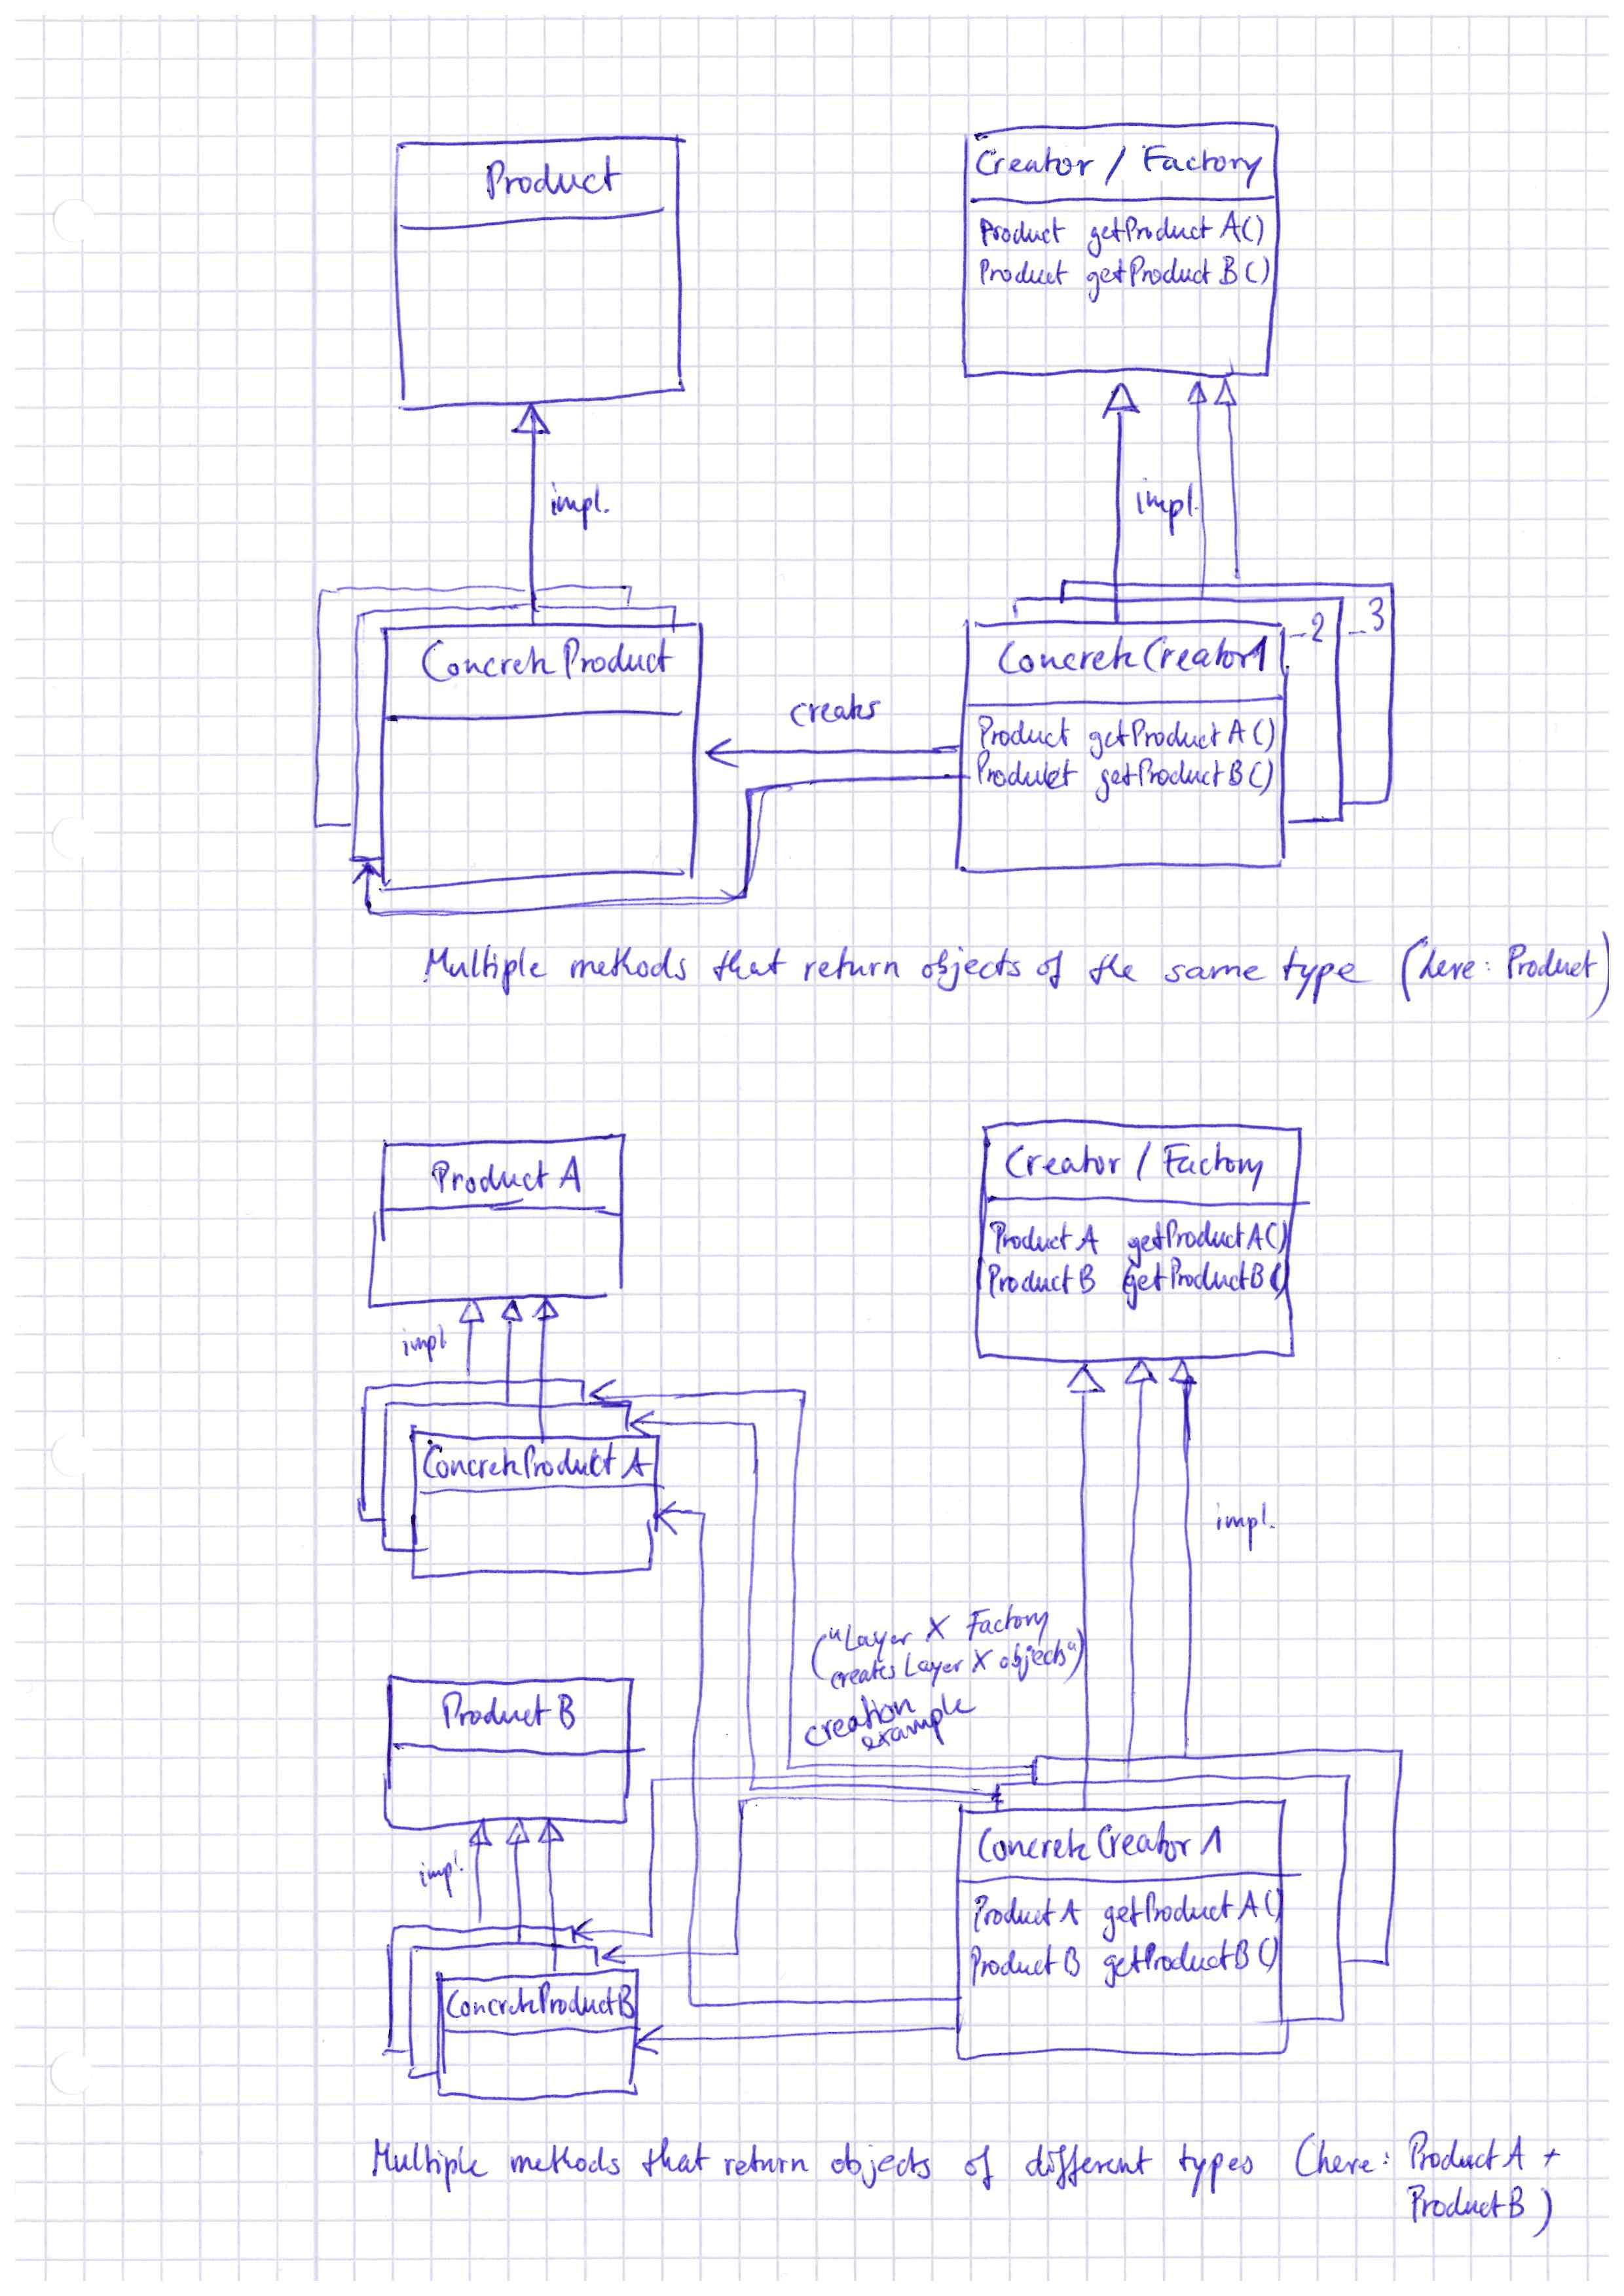 Product
Creator / Factory
Product getProductA()
Product getProductB()
impl.
impl.
ConcreteProduct
ConcreteCreator1
_2
_3
creates
Product getProductA()
Produkt getProductB()
Multiple methods that return objects of the same type (here: Product)
Product A
Creator / Factory
Product A getProductA()
Product B getProductB()
impl
ConcreteProduct A
impl.
("Layer X Factory
creates Layer X objects")
creation
example
Product B
impl.
ConcreteCreator 1
Product A getProductA()
Product B getProductB()
ConcreteProductB
Multiple methods that return objects of different types (here: Product A +
ProductB)